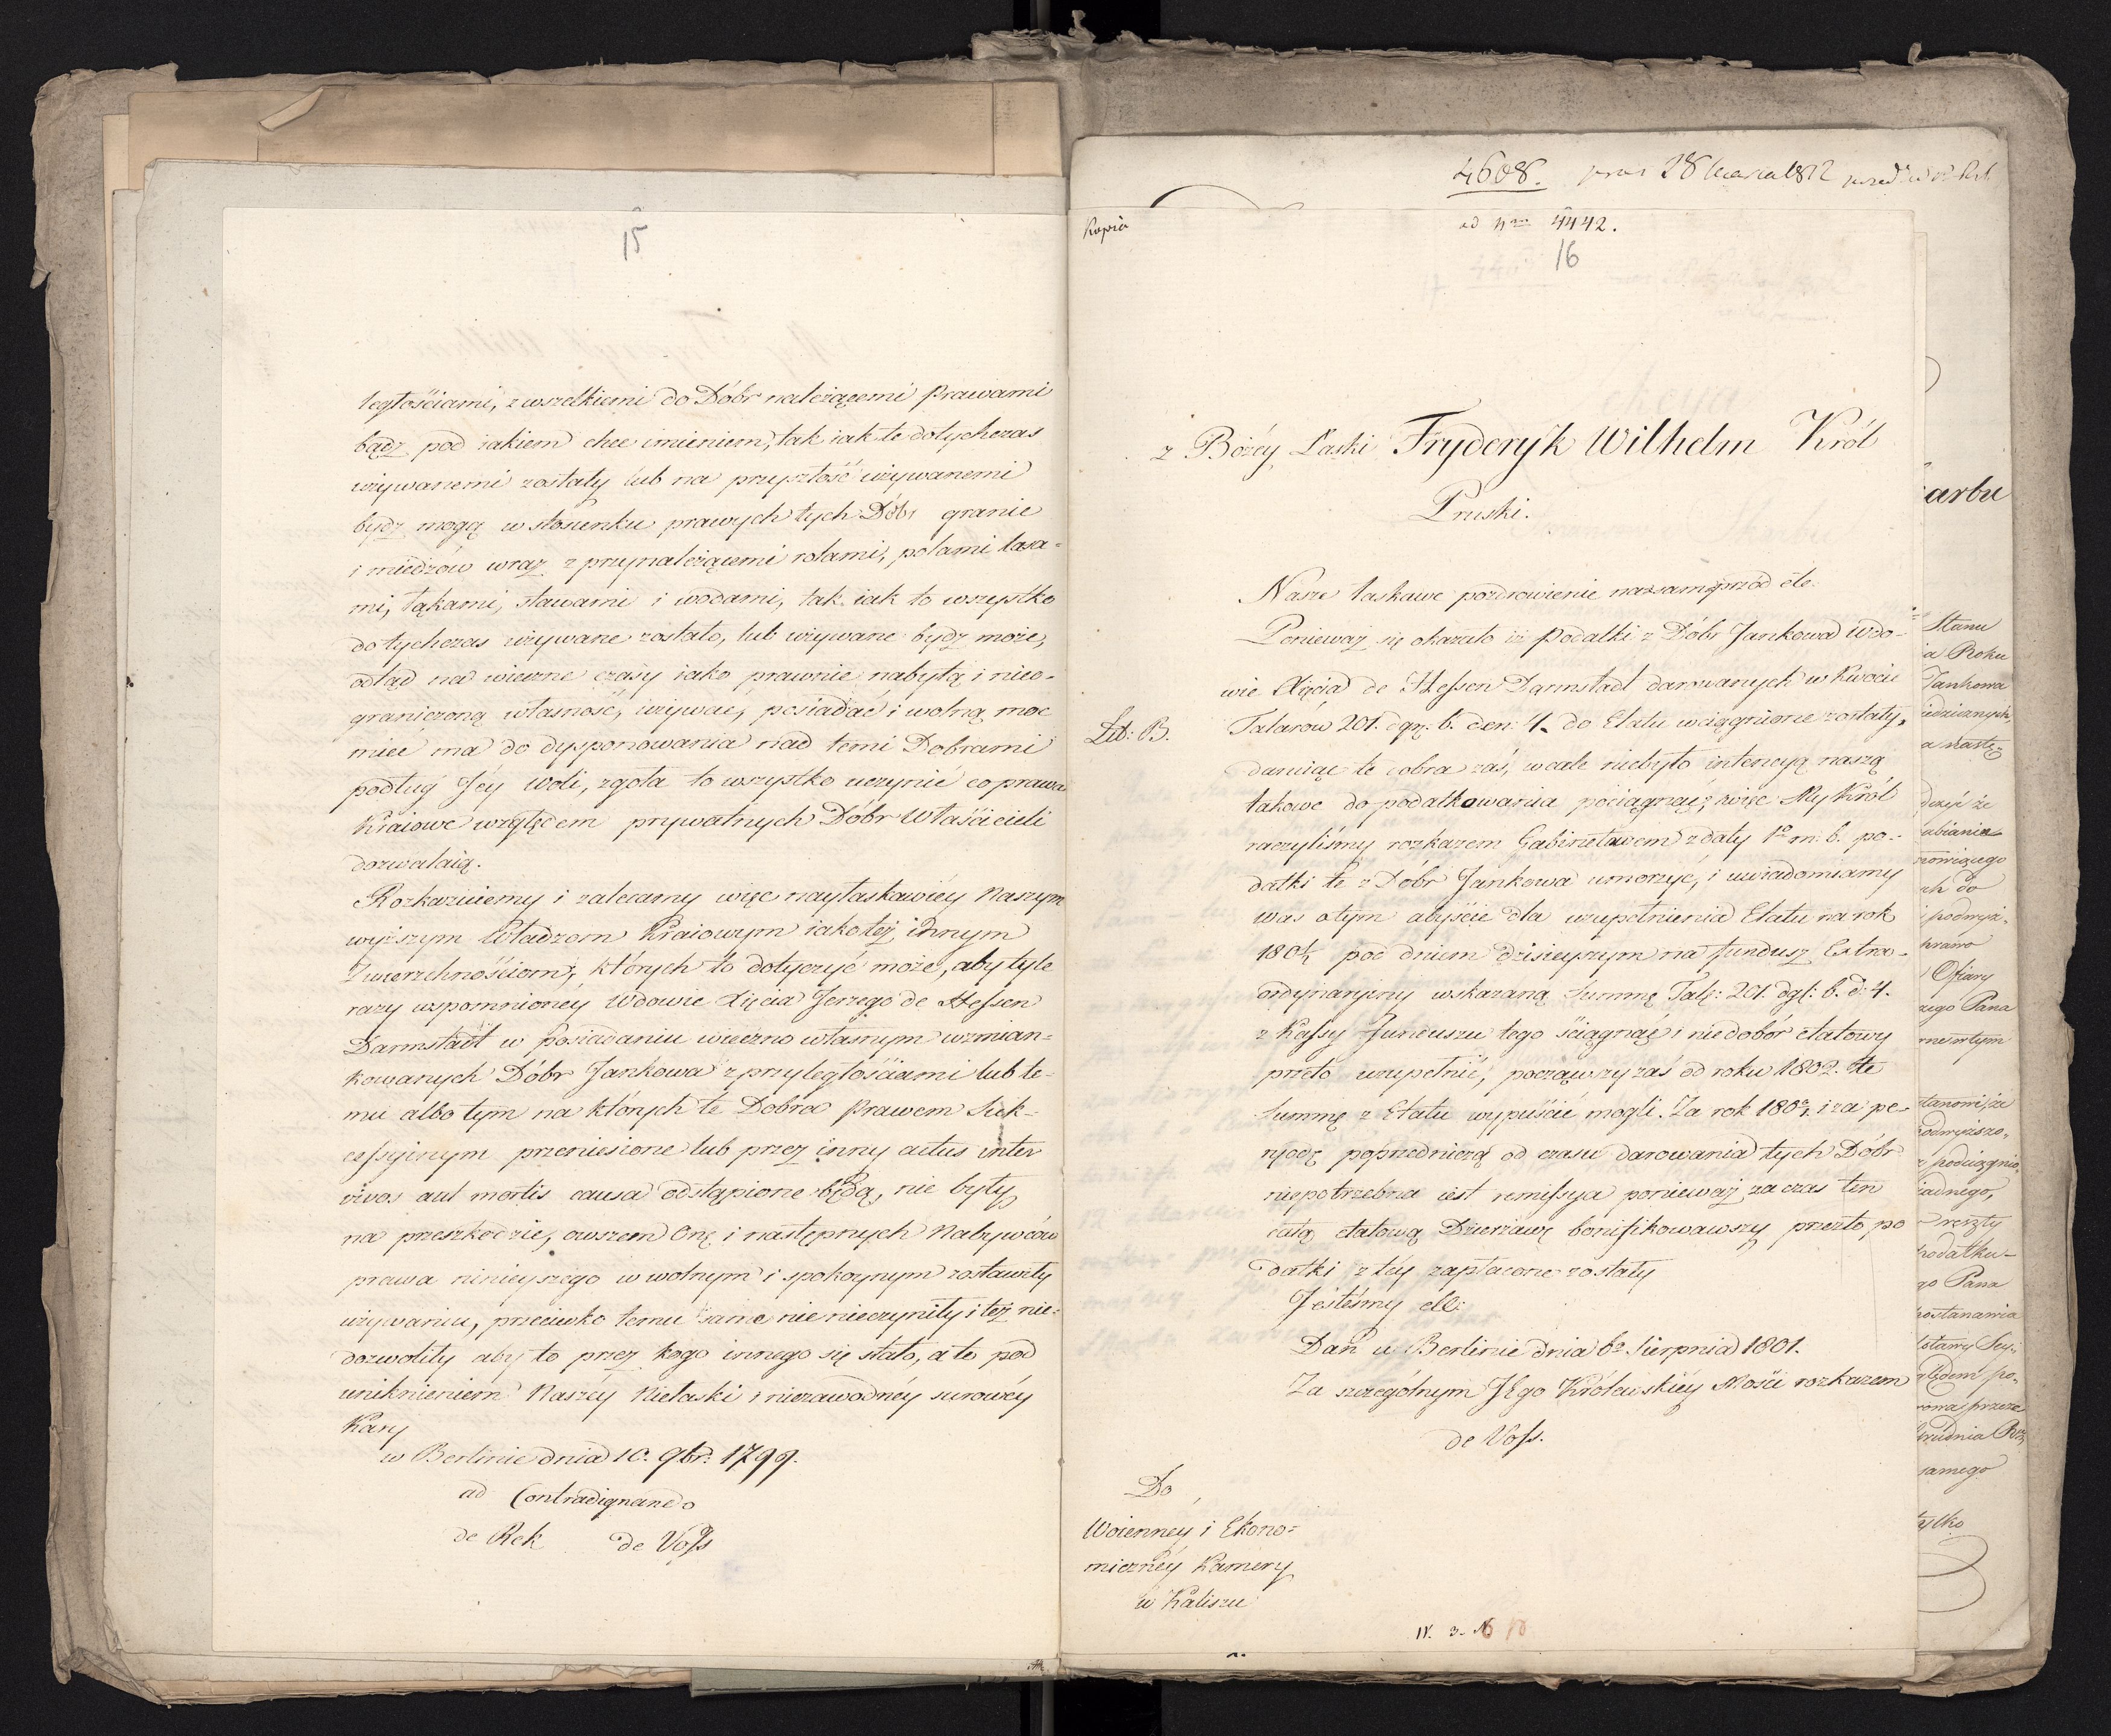 15
ległościami, z wszelkiemi do Dóbr należącemi Prawami
bądz pod iakiem chce imieniem, tak iak te dotychczas
używanemi zostały lub na przyszłość używanemi
bydz mogą w stosunku prawych tych Dóbr granic
i miedzów wraz z przynależącemi rolami, polami lasa-
mi, łąkami, stawami i wodami, tak iak to wszystko
dotychczas używane zostało, lub używane bydz może,
odtąd na wieczne czasy iako prawnie nabytą i nieo-
graniczoną własność, używać, posiadać i wolną moc
mieć ma do dysponowania nad temi Dobrami
podług Jéy woli, zgoła to wszystko uczynić co prawa
Kraiowe względem prywatnych Dóbr Właścicieli
dozwalaią.
Rozkazuiemy i zalecamy więc nayłaskawiéy Naszym
wyższym Władzom Kraiowym iakoteż innym
Zwierzchnościom, których to dotyczyć może, aby tyle
razy wspomnionéy Wdowie Xięcia Jerzego de Hessen
Darmstadt w posiadaniu wieczno własnym wzmian-
kowanych Dóbr Jankowa z przyległościami lub te-
mu albo tym na których te Dobra Prawem Suk-
cessyinym przeniesione lub przez inny actus inter
vivos aut mortis causa odstąpione będą, nie były
na przeszkodzie, owszem Onę i następnych Nabywców
prawa ninieyszego w wolnym i spokoynym zostawiły
używaniu, przeciwko temu same nic nieczyniły i też nie-
dozwoliły aby to przez kogo innego się stało, a to pod
uniknieniem Naszéy Niełaski i niezawodnéy surowéy
Kary
w Berlinie dnia 10. 9br. 1799.
ad Contrasignando
de Rek de Voss
4608.
Kopia
ad Nrm 4442.
16
z Bożéy Łaski Fryderyk Wilhelm Król
Pruski.
Nasze łaskawe pozdrowienie naysamprzód etc.
Ponieważ się okazało iż Podatki z Dóbr Jankowa Wdo-
wie Xięcia de Hessen Darmstadt darowanych w kwocie
Lit: B. Talarów 201. dgr. 6. den. 4. do Etatu wciągnione zostały,
daruiąc te dobra zaś, wcale niebyło intencyą naszą
takowe do podatkowania pociągnąć, więc My Król
raczyliśmy rozkazem Gabinetowem z daty 1o m. b. po-
datki te z Dóbr Jankowa umorzyć, i uwiadomiamy
was o tym abyście dla uzupełnienia Etatu na rok
180½ pod dniem dzisieyszym na fundusz Extra-
ordynaryiny wskazaną Summę Tal: 201. dgl: 6. d: 4.
z Kassy Funduszu tego ściągnąć i niedobór etatowy
przeto uzupełnić, począwszy zaś od roku 1802. tę
Summę z Etatu wypuścić mogli. Za rok 180 i za pe-
ryodę poprzedniczą od czasu darowania tych Dóbr
niepotrzebna iest remissya ponieważ za czas ten
całą etatową Dzierżawę bonifikowawszy przeto po
datki z téy zapłacone zostały
Jesteśmy etc:
Dan w Berlinie dnia 6o Sierpnia 1801.
Za szczególnym JEgo Królewskiéy Mości rozkazem
de Voss.
Do
Woiennéy i Ekono-
micznéy Kamery
w Kaliszu
arbu
Stanu
a Roku
Jankowa
a nastę-
ch do
Ofiary
zego Pana
żadnego,
reszty
podatku-
go Pana
postanawia
samego
tylko